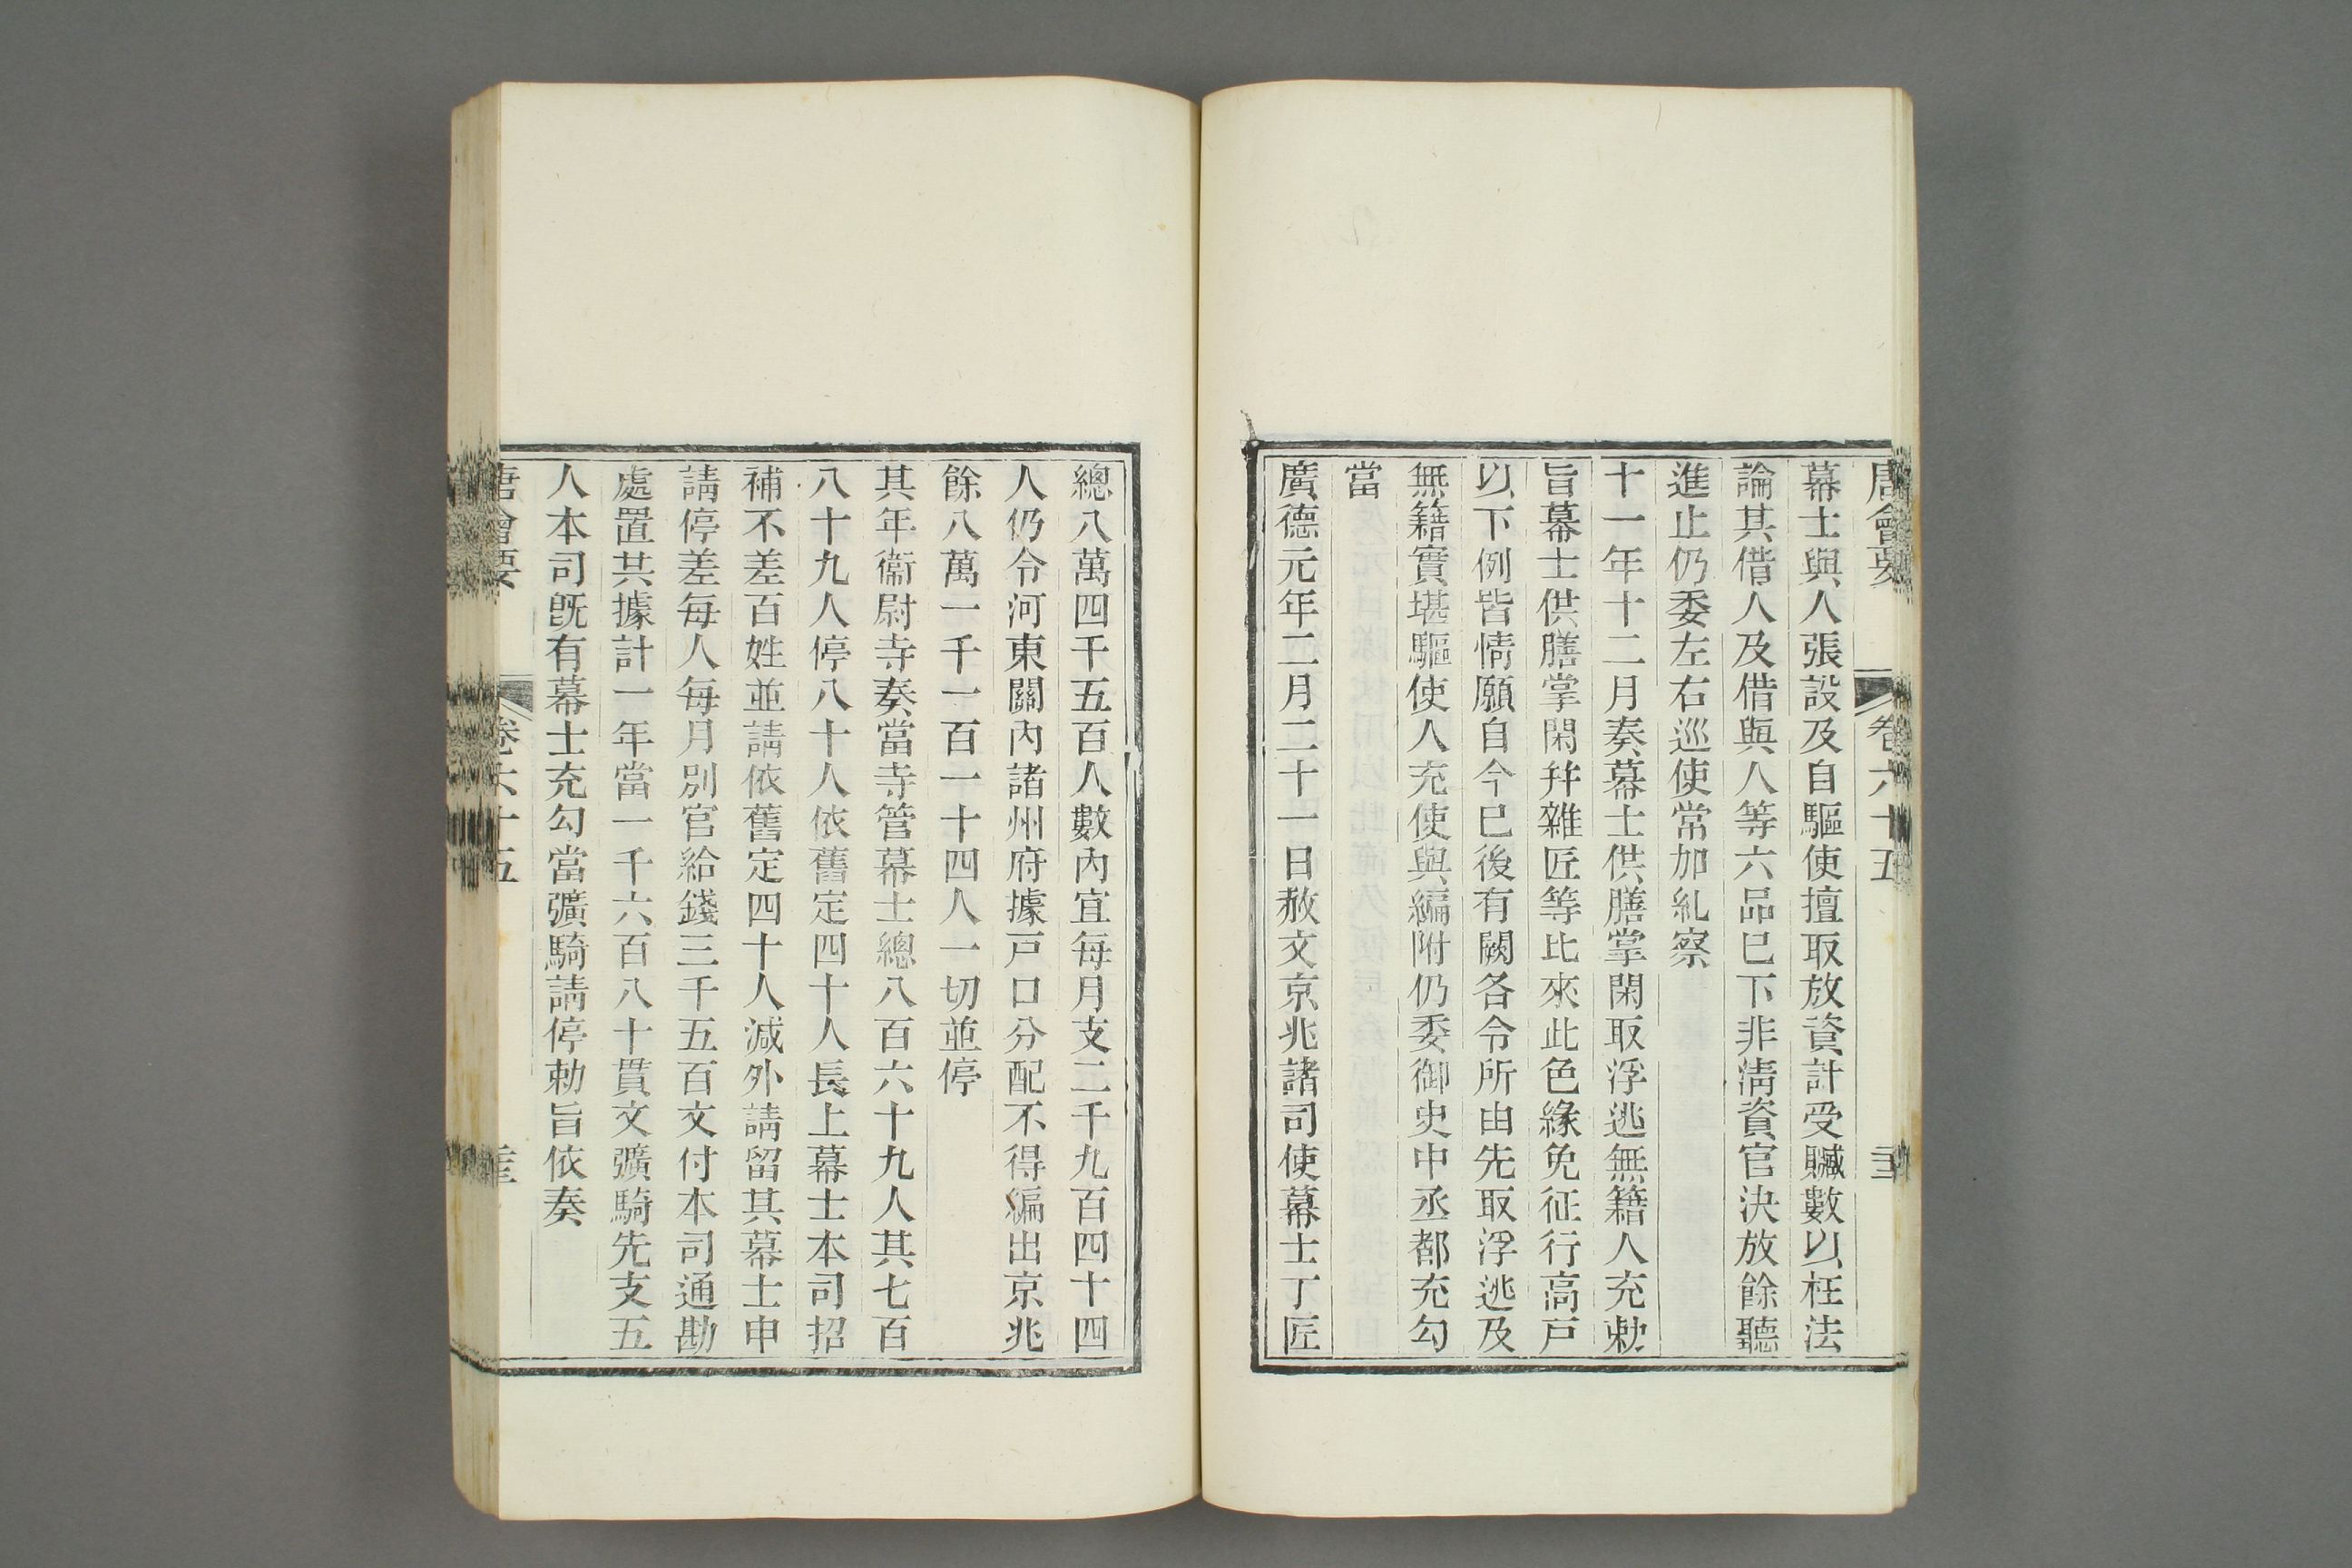 唐會要 卷六十五
幕士與人張設及自驅使擅取放資計受贓數以枉法
論其借人及借與人等六品已下非淸資官決放餘聽
進止仍委左右巡使常加糺察
十一年十二月奏幕士供膳掌閑取浮逃無籍人充勅
旨幕士供膳掌閑幷雜匠等比來此色緣免征行高戸
以下例皆情願自今已後有闕各令所由先取浮逃及
無籍實堪驅使人充使與編附仍委御史中丞都充勾
當
廣德元年二月二十一日赦文京兆諸司使幕士丁匠
總八萬四千五百人數內宜每月支二千九百四十四
人仍令河東關內諸州府據戸口分配不得編出京兆
餘八萬一千一百一十四人一切並停
其年衞尉寺奏當寺管幕士總八百六十九人其七百
八十九人停八十人依舊定四十人長上幕士本司招
補不差百姓並請依舊定四十人減外請留其幕士申
請停差每人每月別官給錢三千五百文付本司通勘
處置其據計一年當一千六百八十貫文彍騎先支五
人本司旣有幕士充勾當彍騎請停勅旨依奏
唐會要 卷六十五